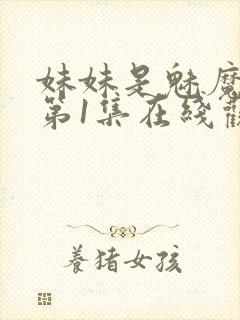 妹妹是魅魔
第1集在綫觀
養猪女孩